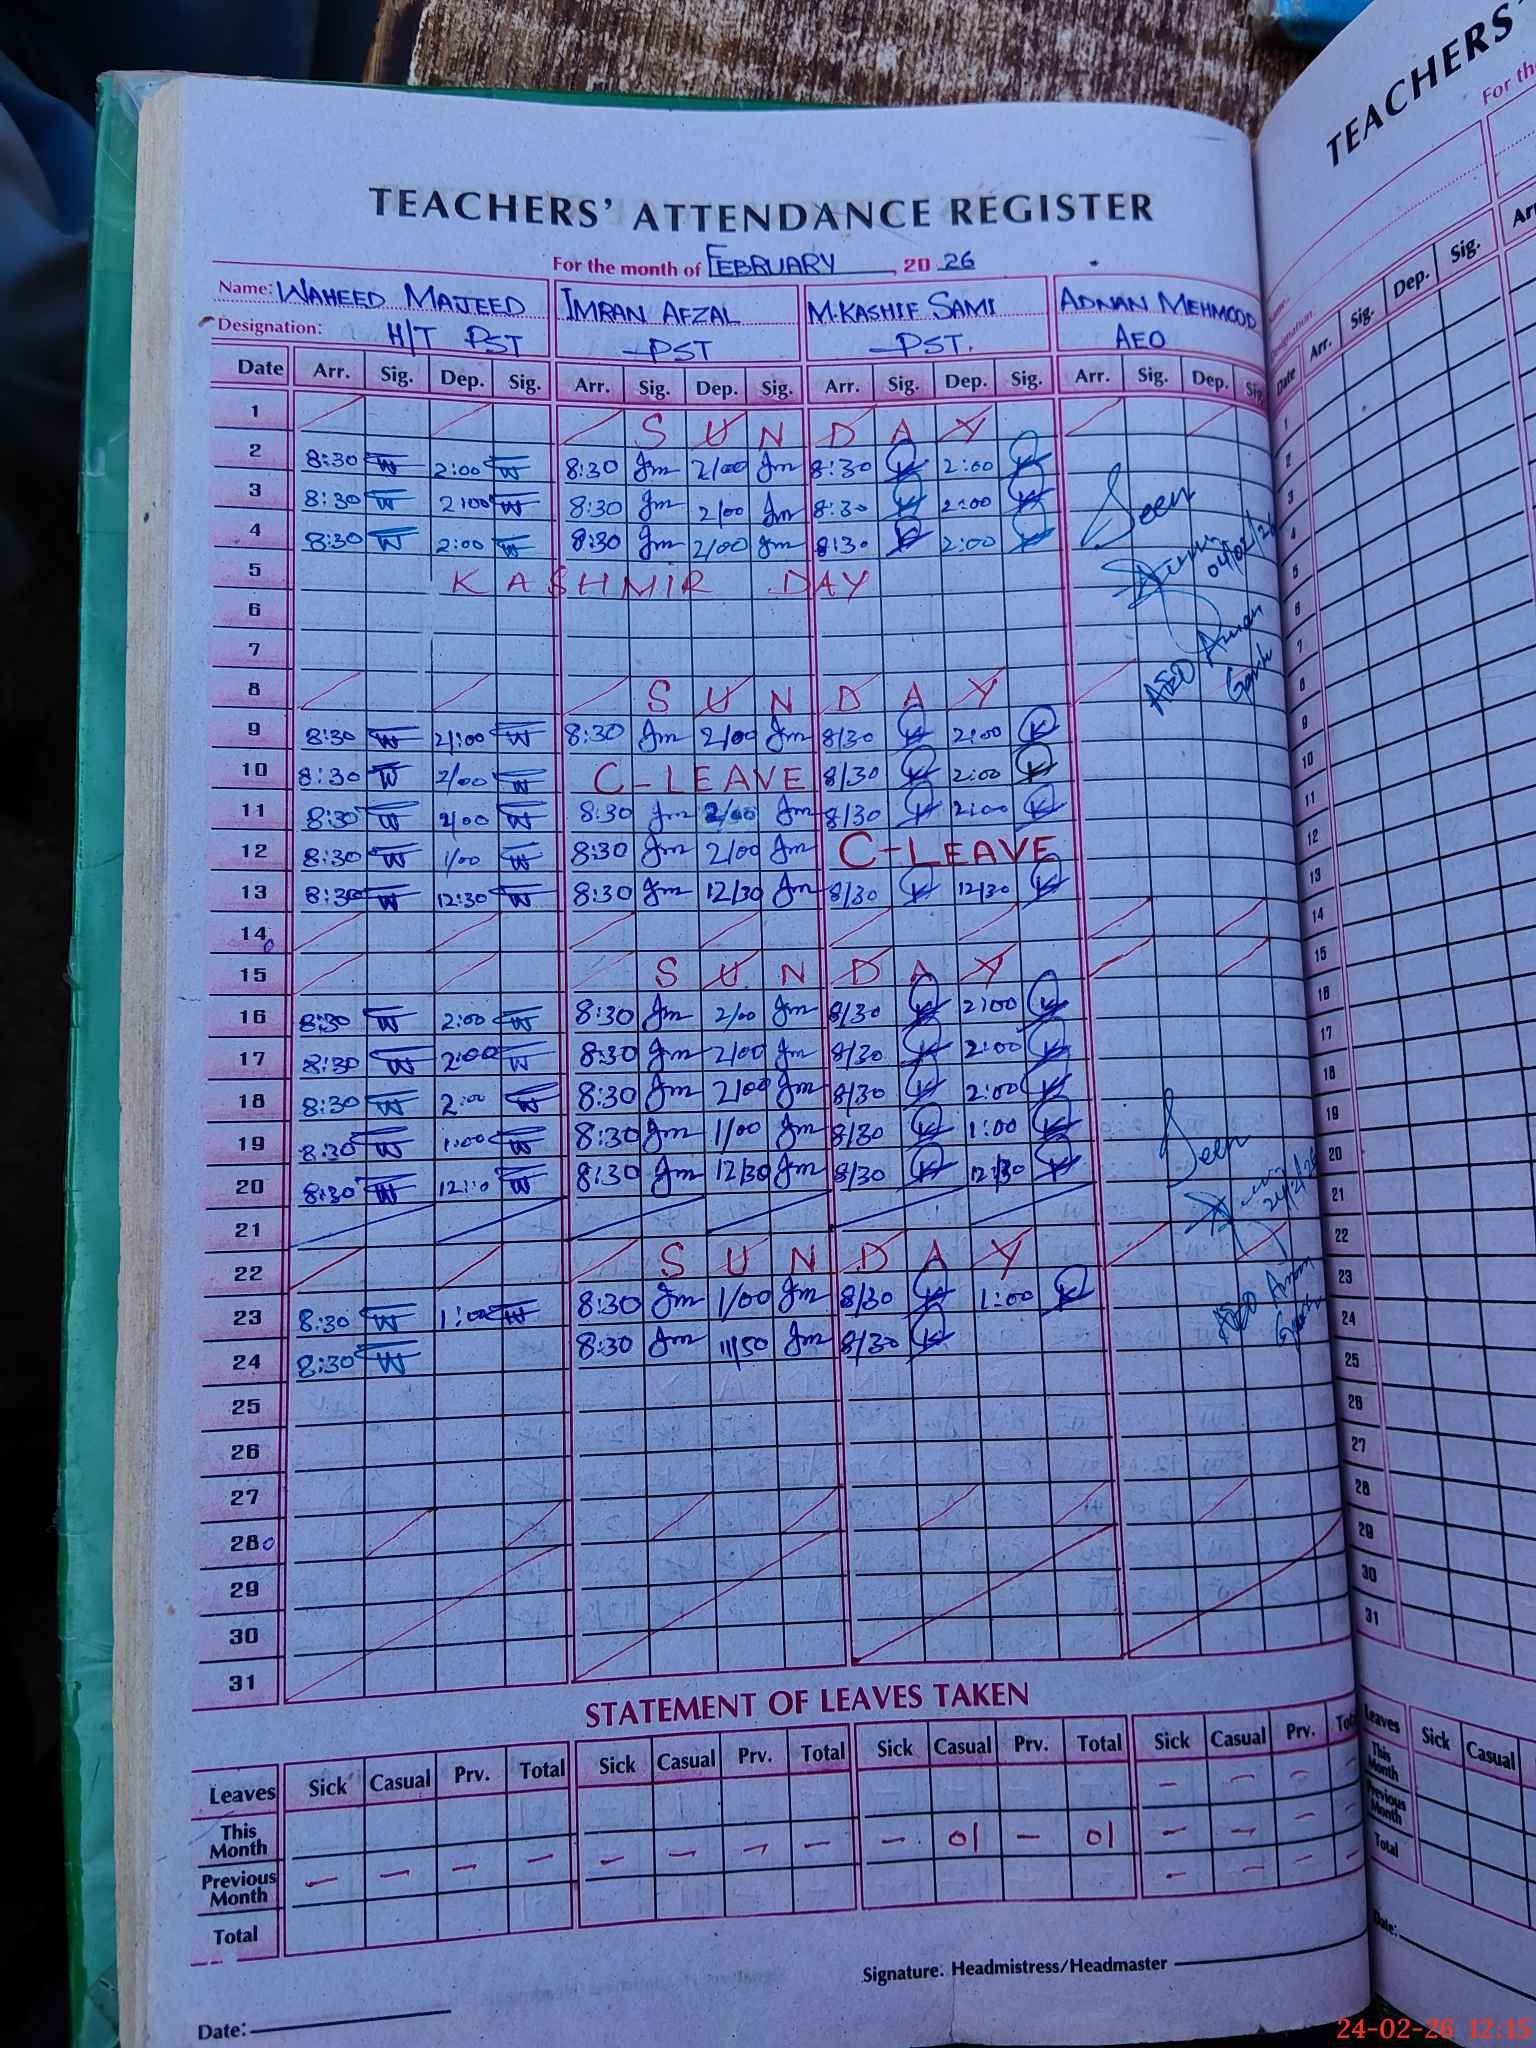 TEACHERS' ATTENDANCE REGISTER
For the month of FEBRUARY 20 26
Name: WAHEED MAJEED IMRAN AFZAL M.KASHIF SAMI ADNAN MEHMOOD
Designation: H/T PST PST PST. AEO
Date Arr. Sig. Dep. Sig. Arr. Sig. Dep. Sig. Arr. Sig. Dep. Sig. Arr. Sig. Dep. Sig
1 SUNDAY
2 8:30 W 2:00 W 8:30 Jm 2/00 Jm 8:30 K 2:00 K
3 8:30 W 2:00 W 8:30 Jm 2/00 Jm 8:30 K 2:00 K Seen
4 8:30 W 2:00 W 8:30 Jm 2/00 Jm 8:30 K 2:00 K 04/02/26
5 KASHMIR DAY
6
7
8 SUNDAY AEO
9 8:30 W 2/:00 W 8:30 Jm 2/00 Jm 8/30 K 2:00 K
10 8:30 W 2/00 W C-LEAVE 8/30 K 2:00 K
11 8:30 W 2/00 W 8:30 Jm 2/00 Jm 8/30 K 2:00 K
12 8:30 W 1/00 W 8:30 Jm 2/00 Jm C-LEAVE
13 8:30 W 12:30 W 8:30 Jm 12/30 Jm 8/30 K 12/30 K
14
15 SUNDAY
16 8:30 W 2:00 W 8:30 Jm 2/00 Jm 8/30 K 2:00 K
17 8:30 W 2:00 W 8:30 Jm 2/00 Jm 8/30 K 2:00 K
18 8:30 W 2:00 W 8:30 Jm 2/00 Jm 8/30 K 2:00 K
19 8:30 W 1:00 W 8:30 Jm 1/00 Jm 8/30 K 1:00 K Seen
20 8:30 W W 8:30 Jm 12/30 Jm 8/30 K 12/30 K
21 24/2/26
22 SUNDAY
23 8:30 W 1:00 W 8:30 Jm 1/00 Jm 8/30 K 1:00 K AEO
24 8:30 W 8:30 Jm 11/50 Jm 8/30 K
25
26
27
28
29
30
31
STATEMENT OF LEAVES TAKEN
Leaves Sick Casual Prv. Total Sick Casual Prv. Total Sick Casual Prv. Total Sick Casual Prv. Tota
This Month – – – –
Previous Month – – – – – – – – – 01 – 01 – – – –
Total – – – –
Signature. Headmistress/Headmaster
Date:
TEACHERS'
For the
Name:
Designation:
Date Arr. Sig. Dep. Sig. Arr
1
2
3
4
5
6
7
8
9
10
11
12
13
14
15
16
17
18
19
20
21
22
23
24
25
26
27
28
29
30
31
Leaves Sick Casual
This Month
Previous Month
Total
Date:
24-02-26 12:15